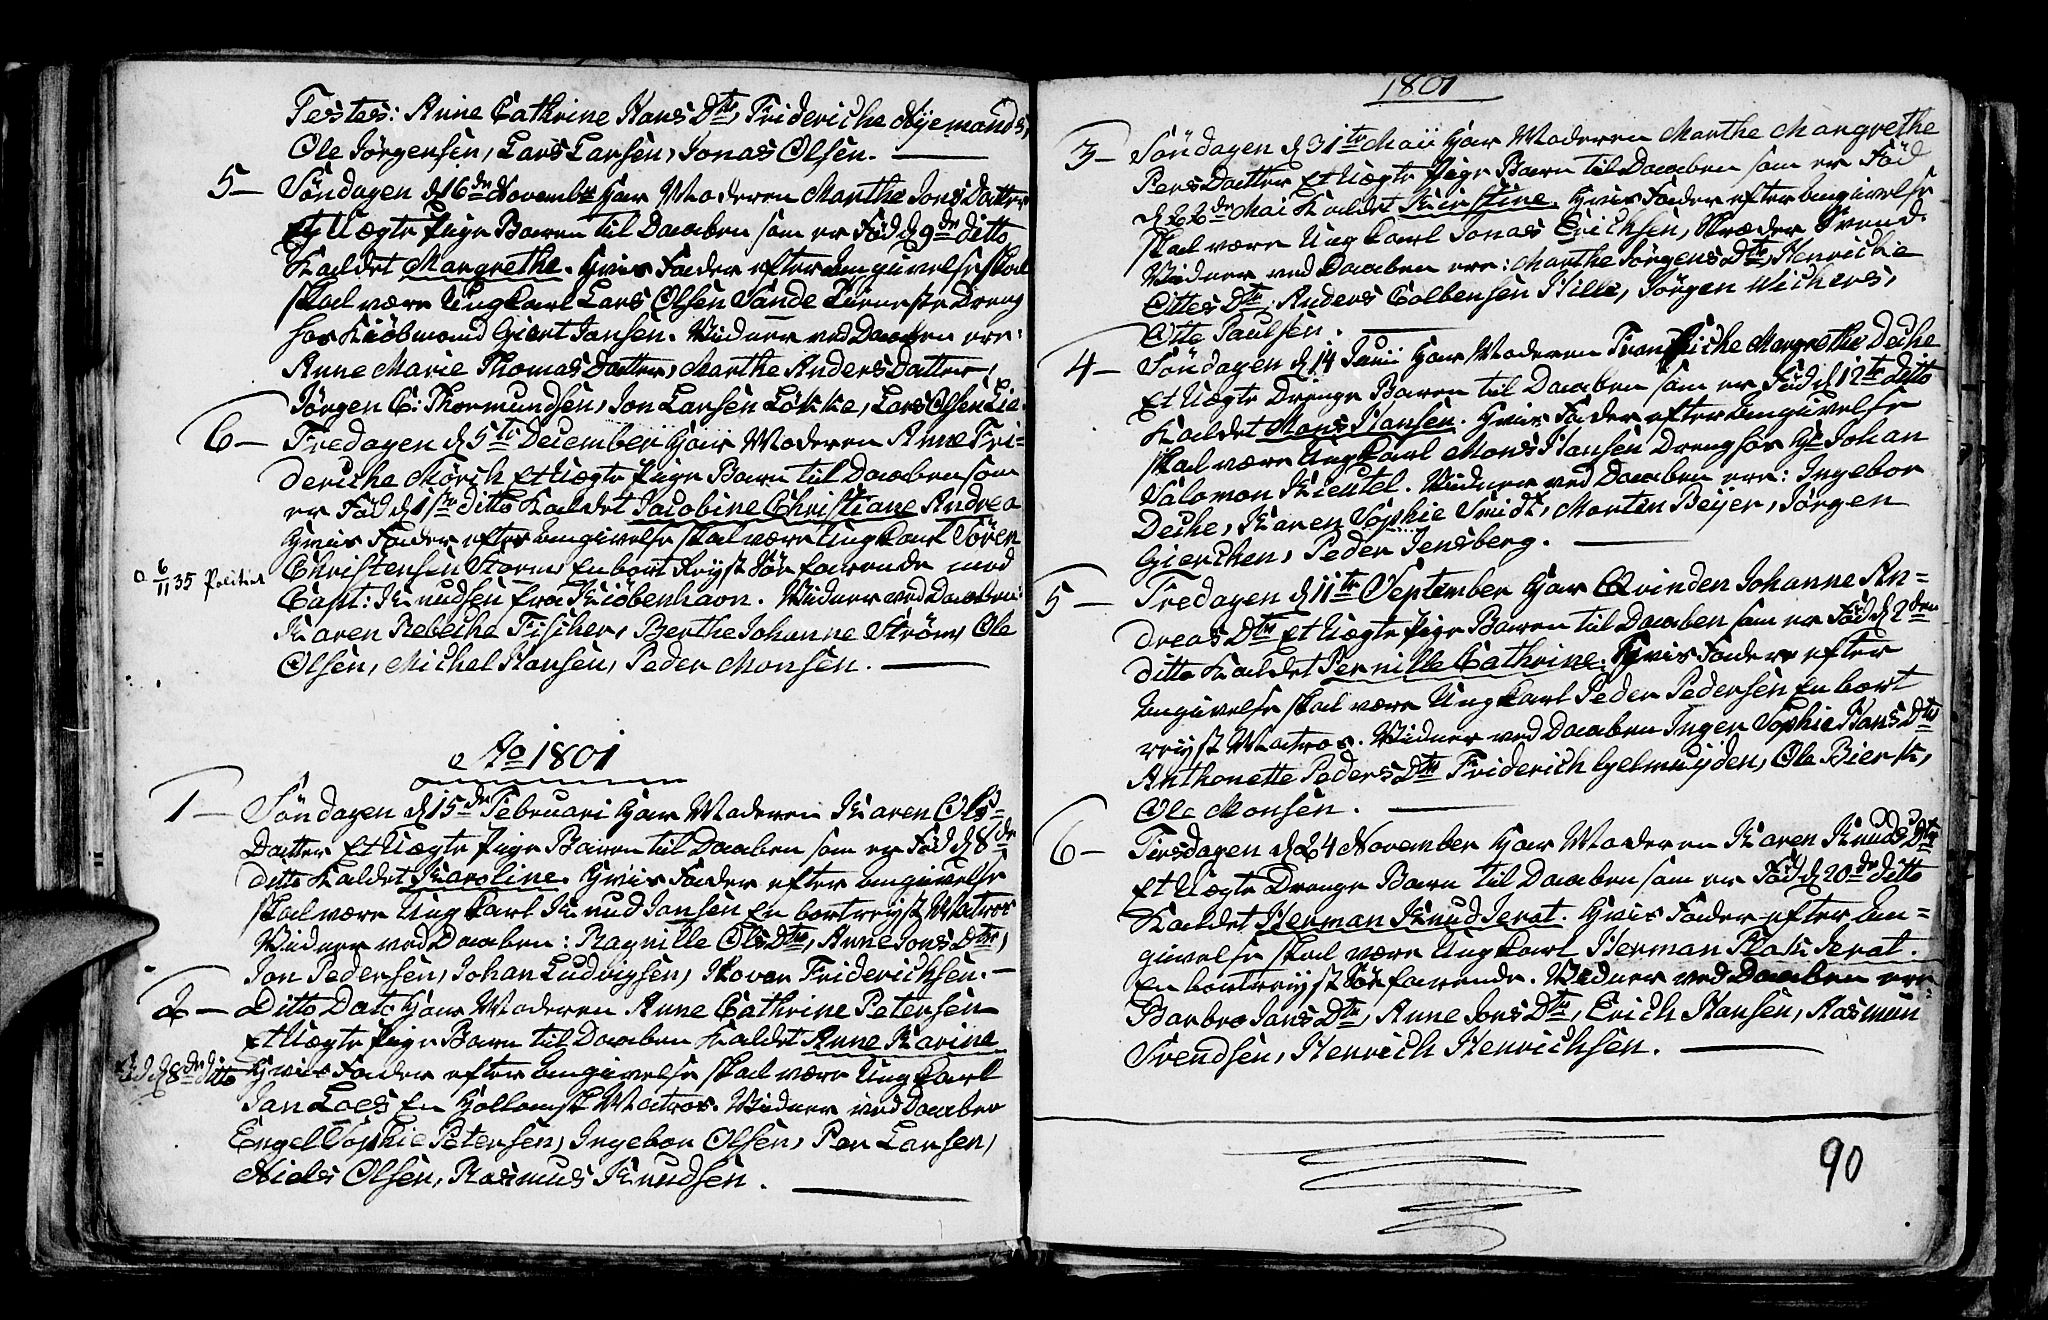 Testes: Anne Cathrine Hans Dtr, Friderche Nyemands,
Ole Jörgensen, Lars Larsen, Jonas Olsen.
5 — Söndagen d 16de Novembr har Moderen Marthe Jons Datter
Et Uægte Pige Barn til Daaben som er Fød d 9de ditto
Kaldet Margrethe. Hvis Fader efter Angivelse skal
skal være Ungkarl Lars Olsen Sande Tieneste Dreng
hos Kiöbmand Giert Jansen. Vidner ved Daaben ere:
Anne Marie Thomas Datter, Marthe Anders Datter,
Jörgen C: Thormundsen, Jon Larsen Løkke, Lars Olsen Lie.
6 — Fredagen d 5te December har Moderen Anne Fri-
deriche Mörch Et Uægte Pige Barn til Daaben som
er Fød d 1ste ditto Kaldet Jacobine Christiane Andrea
Hvis Fader efter Angivelse skal være Ungkarl Sören
Christensen Storm, En bort Reyst Söe farende med
a 6/11 35 Politiet
Capt: Knudsen fra Kiöbenhavn. Vidner ved Daaben:
Karen Rebecke Fischer, Berthe Johanne Ström, Ole
Olsen, Michel Hansen, Peder Monsen.
Ao 1801
1 — Söndagen d 15de Februari har Moderen Karen Ols-
Datter Et Uægte Pige Barn til Daaben som er Fød d 8de
ditto Kaldet Karoline. Hvis Fader efter Angivelse
skal være Ungkarl Knud Jansen En bortreyst Matros
Vidner ved Daaben: Ragnille Ols Dtr, Anne Jons Dtr,
Jon Pedersen, Johan Ludvigsen, Hover Friderichsen.
2 — Ditto Dato har Moderen Anne Cathrine Petersen
Et Uægte Pige Barn til Daaben Kaldet Anne Karine
Fød d 8de ditto Hvis Fader efter Angivelse skal være Ungkarl
Jan Loes En Hollansk Matros. Vidner ved Daaben
Engel Sophie Petersen, Ingebor Olsen, Per Larsen,
Niels Olsen, Rasmus Knudsen.
1801
3 — Söndagen d 31te Maii har Moderen Marthe Margrethe
Pers Datter Et Uægte Pige Barn til Daaben som er Fød
d 22de Mai Kaldet Kirstine. Hvis Fader efter Angivelse
skal være Ungkarl Jonas Erichsen, Skræder Svend.
Vidner ved Daaben ere: Marthe Jörgens Dtr, Henriche
Ottes Dtr, Anders Colbensen Hille, Jörgen Wichers,
Otte Paulsen.
4 — Söndagen d 14 Junii har Moderen Margrethe Deche
Et Uægte Drenge Barn til Daaben som er Fød d 12te ditto
Kaldet Mons Hansen. Hvis Fader efter Angivelse
skal være Ungkarl Mons Hansen Dreng hos Hr Johan
Salomon Kieutel. Vidner ved Daaben ere: Ingebor
Deche, Karen Sophie Smidt, Morten Beijer, Jörgen
Gierchen, Peder Jensberg.
5 — Fredagen d 11te September har Qvinden Johanne An-
dreas Dtr Et Uægte Pige Barn til Daaben som er Fød d 2den
ditto Kaldet Pernille Cathrine. Hvis Fader efter
Angivelse skal være Ungkarl Peder Pedersen En bort
reyst Matros. Vidner ved Daaben Inger Sophie Hans Dtr
Anthonette Peders Dtr Friderich Gelmuyden, Ole Bierk,
Ole Monsen.
6 — Tirsdagen d 24 November har Moderen Karen Knuds Dtr
Et Uægte Drenge Barn til Daaben som er Fød d 20de ditto
Kaldet Herman Knud Jerat. Hvis Fader efter An-
givelse skal være Ungkarl Herman Jerat.
En bortreyst Söe farende. Vidner ved Daaben ere:
Barbro Jans Dtr, Anne Jons Dtr, Erich Hansen, Rasmus
Svendsen, Henrich Henrichsen.
90